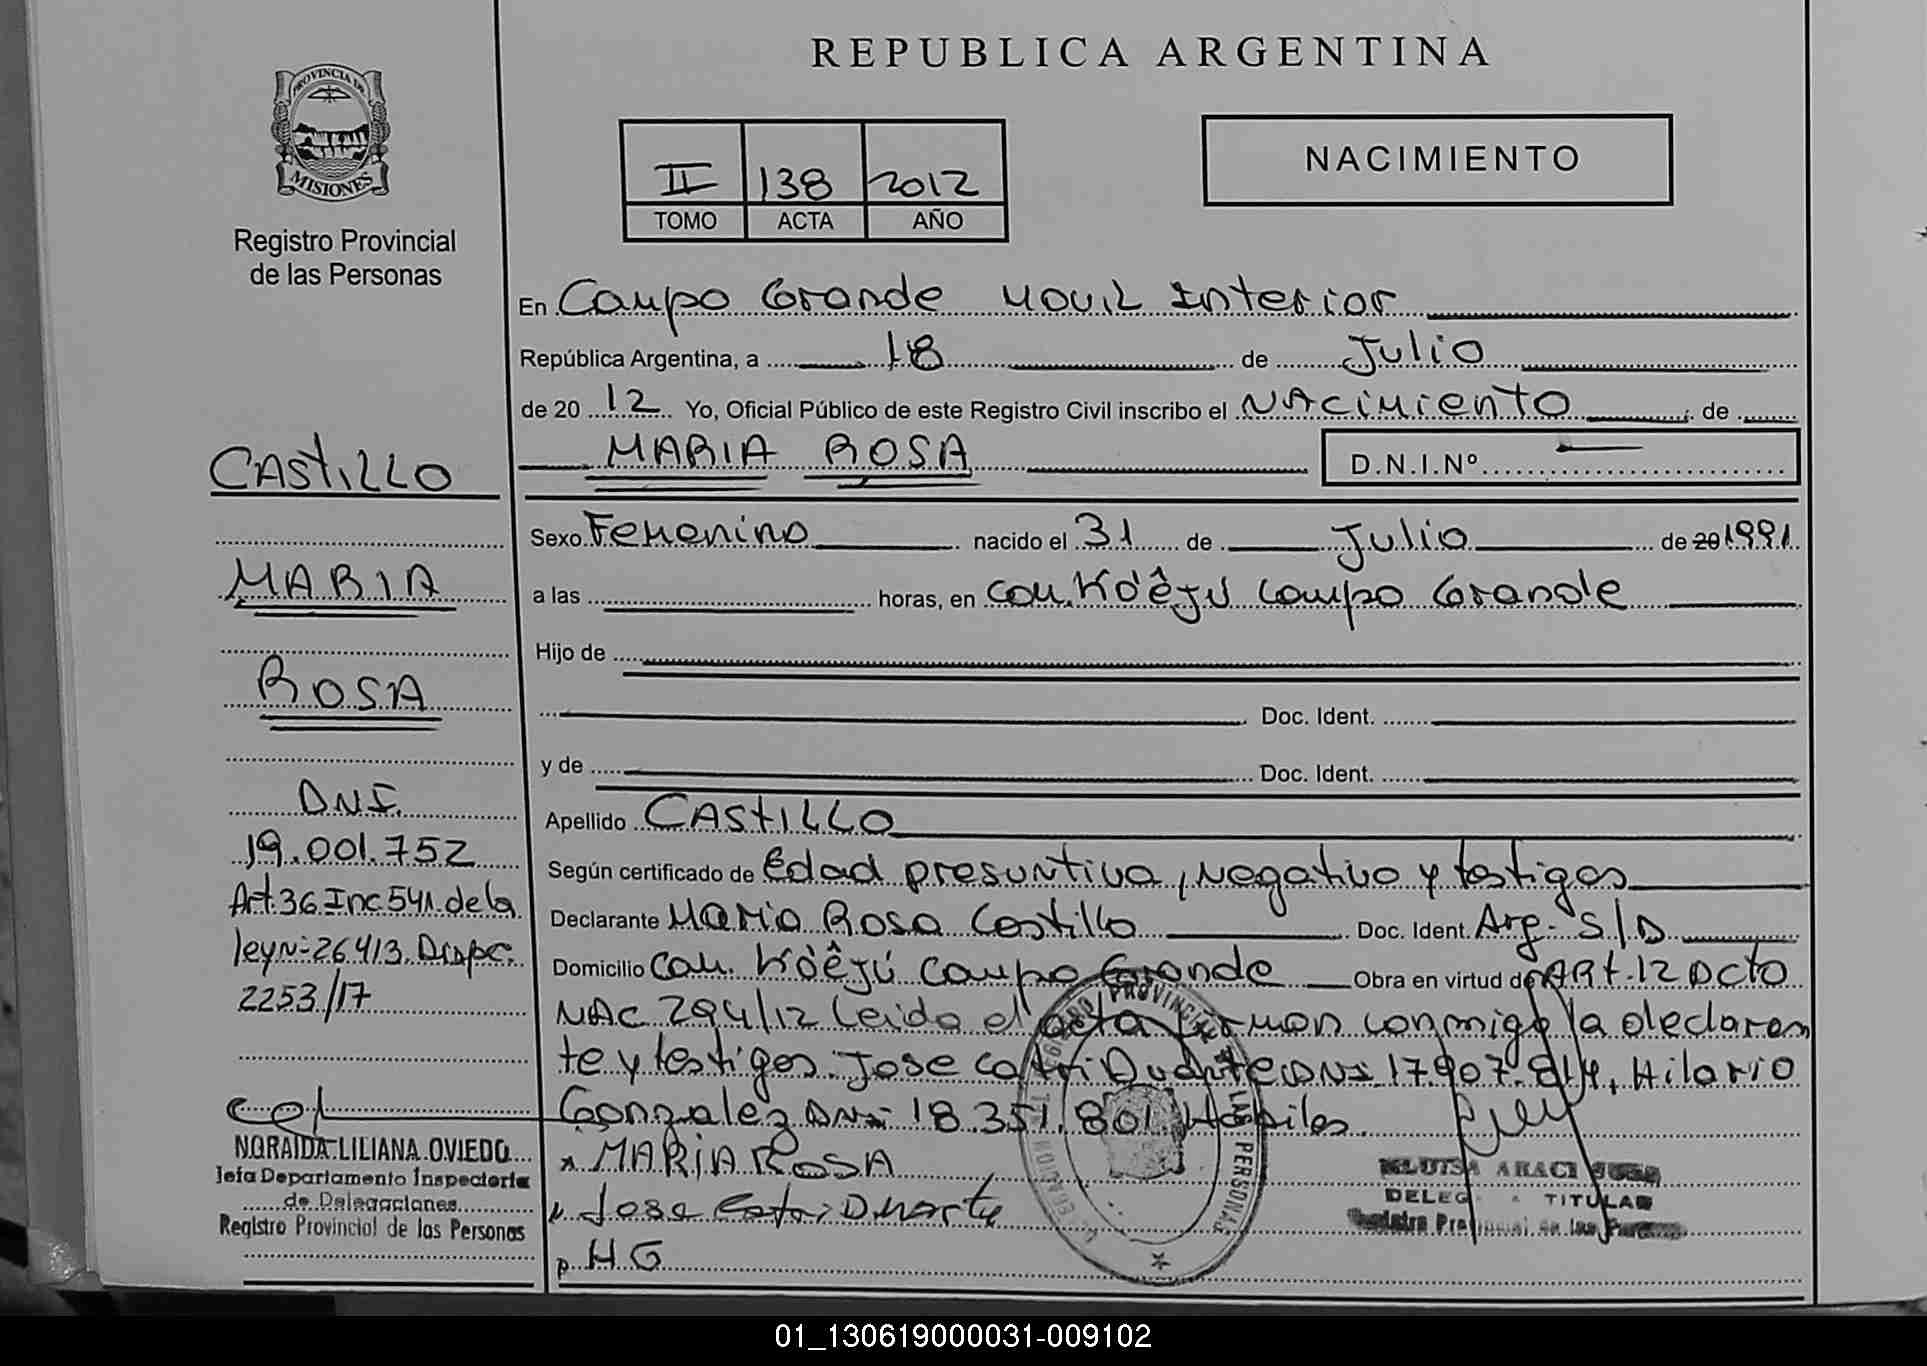 REPUBLICA ARGENTINA
PROVINCIA DE
MISIONES
Registro Provincial
de las Personas
II 138 2012
TOMO ACTA AÑO
NACIMIENTO
En Campo Grande Movil Interior
República Argentina, a 18 de Julio
de 20 12 Yo, Oficial Público de este Registro Civil inscribo el NAcimiento de
MARIA ROSA D.N.I.Nº
Sexo Femenino nacido el 31 de Julio de 20 1991
a las horas, en com. Ka'êjú Campo Grande
Hijo de
Doc. Ident.
y de Doc. Ident.
Apellido CAStiLLO
Según certificado de Edad presuntiva, Negativo y testigos
Declarante Maria Rosa Castillo Doc. Ident. Arg- S/D
Domicilio com. Ka'êjú Campo Grande Obra en virtud de ARt. 12 Dcto
NAC 294/12 Leida el acta firman conmigo la declaran
te y testigos: Jose Catri Duarte DNI 17.907.814, Hilario
Gonzalez DNI 18.351.801 Habiles
x MARIA ROSA
Jose Catri Duarte
P HG
CAStiLLO
MARIA
ROSA
DNI.
19.001.752
Art.36 Inc 541 de la
ley Nº 26413 Dispc.
2253/17
NORAIDA LILIANA OVIEDO
Jefa Departamento Inspectoria
de Delegaciones
Registro Provincial de las Personas
REGISTRO PROVINCIAL DE LAS PERSONAS
DELEGADA TITULAR
Registro Provincial de las Personas
01_130619000031-009102